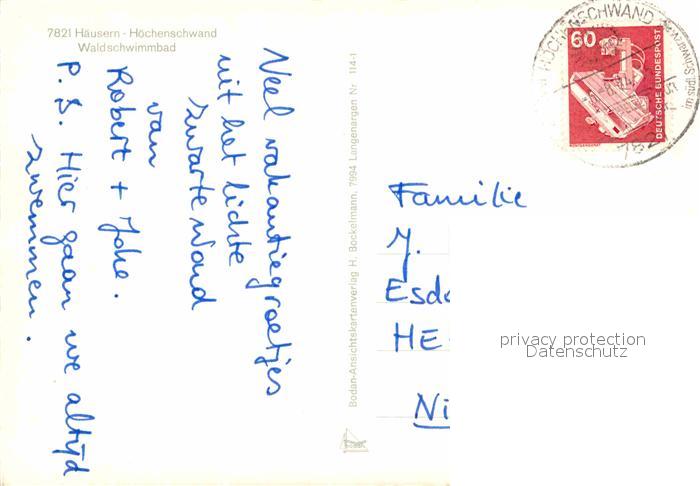 7821 Häusern - Höchenschwand
Waldschwimmbad
Veel vakantiegroetjes
uit het lichte
zwarte woud
van
Robert + Joke.
P.S. Hier gaan we altijd
zwemmen.
Bodan-Ansichtskartenverlag H. Bockelmann, 7994 Langenargen Nr 114-1
60
DEUTSCHE BUNDESPOST
HÖCHENSCHWAND
Familie
J.
Esd
HE
Ni
privacy protection
Datenschutz